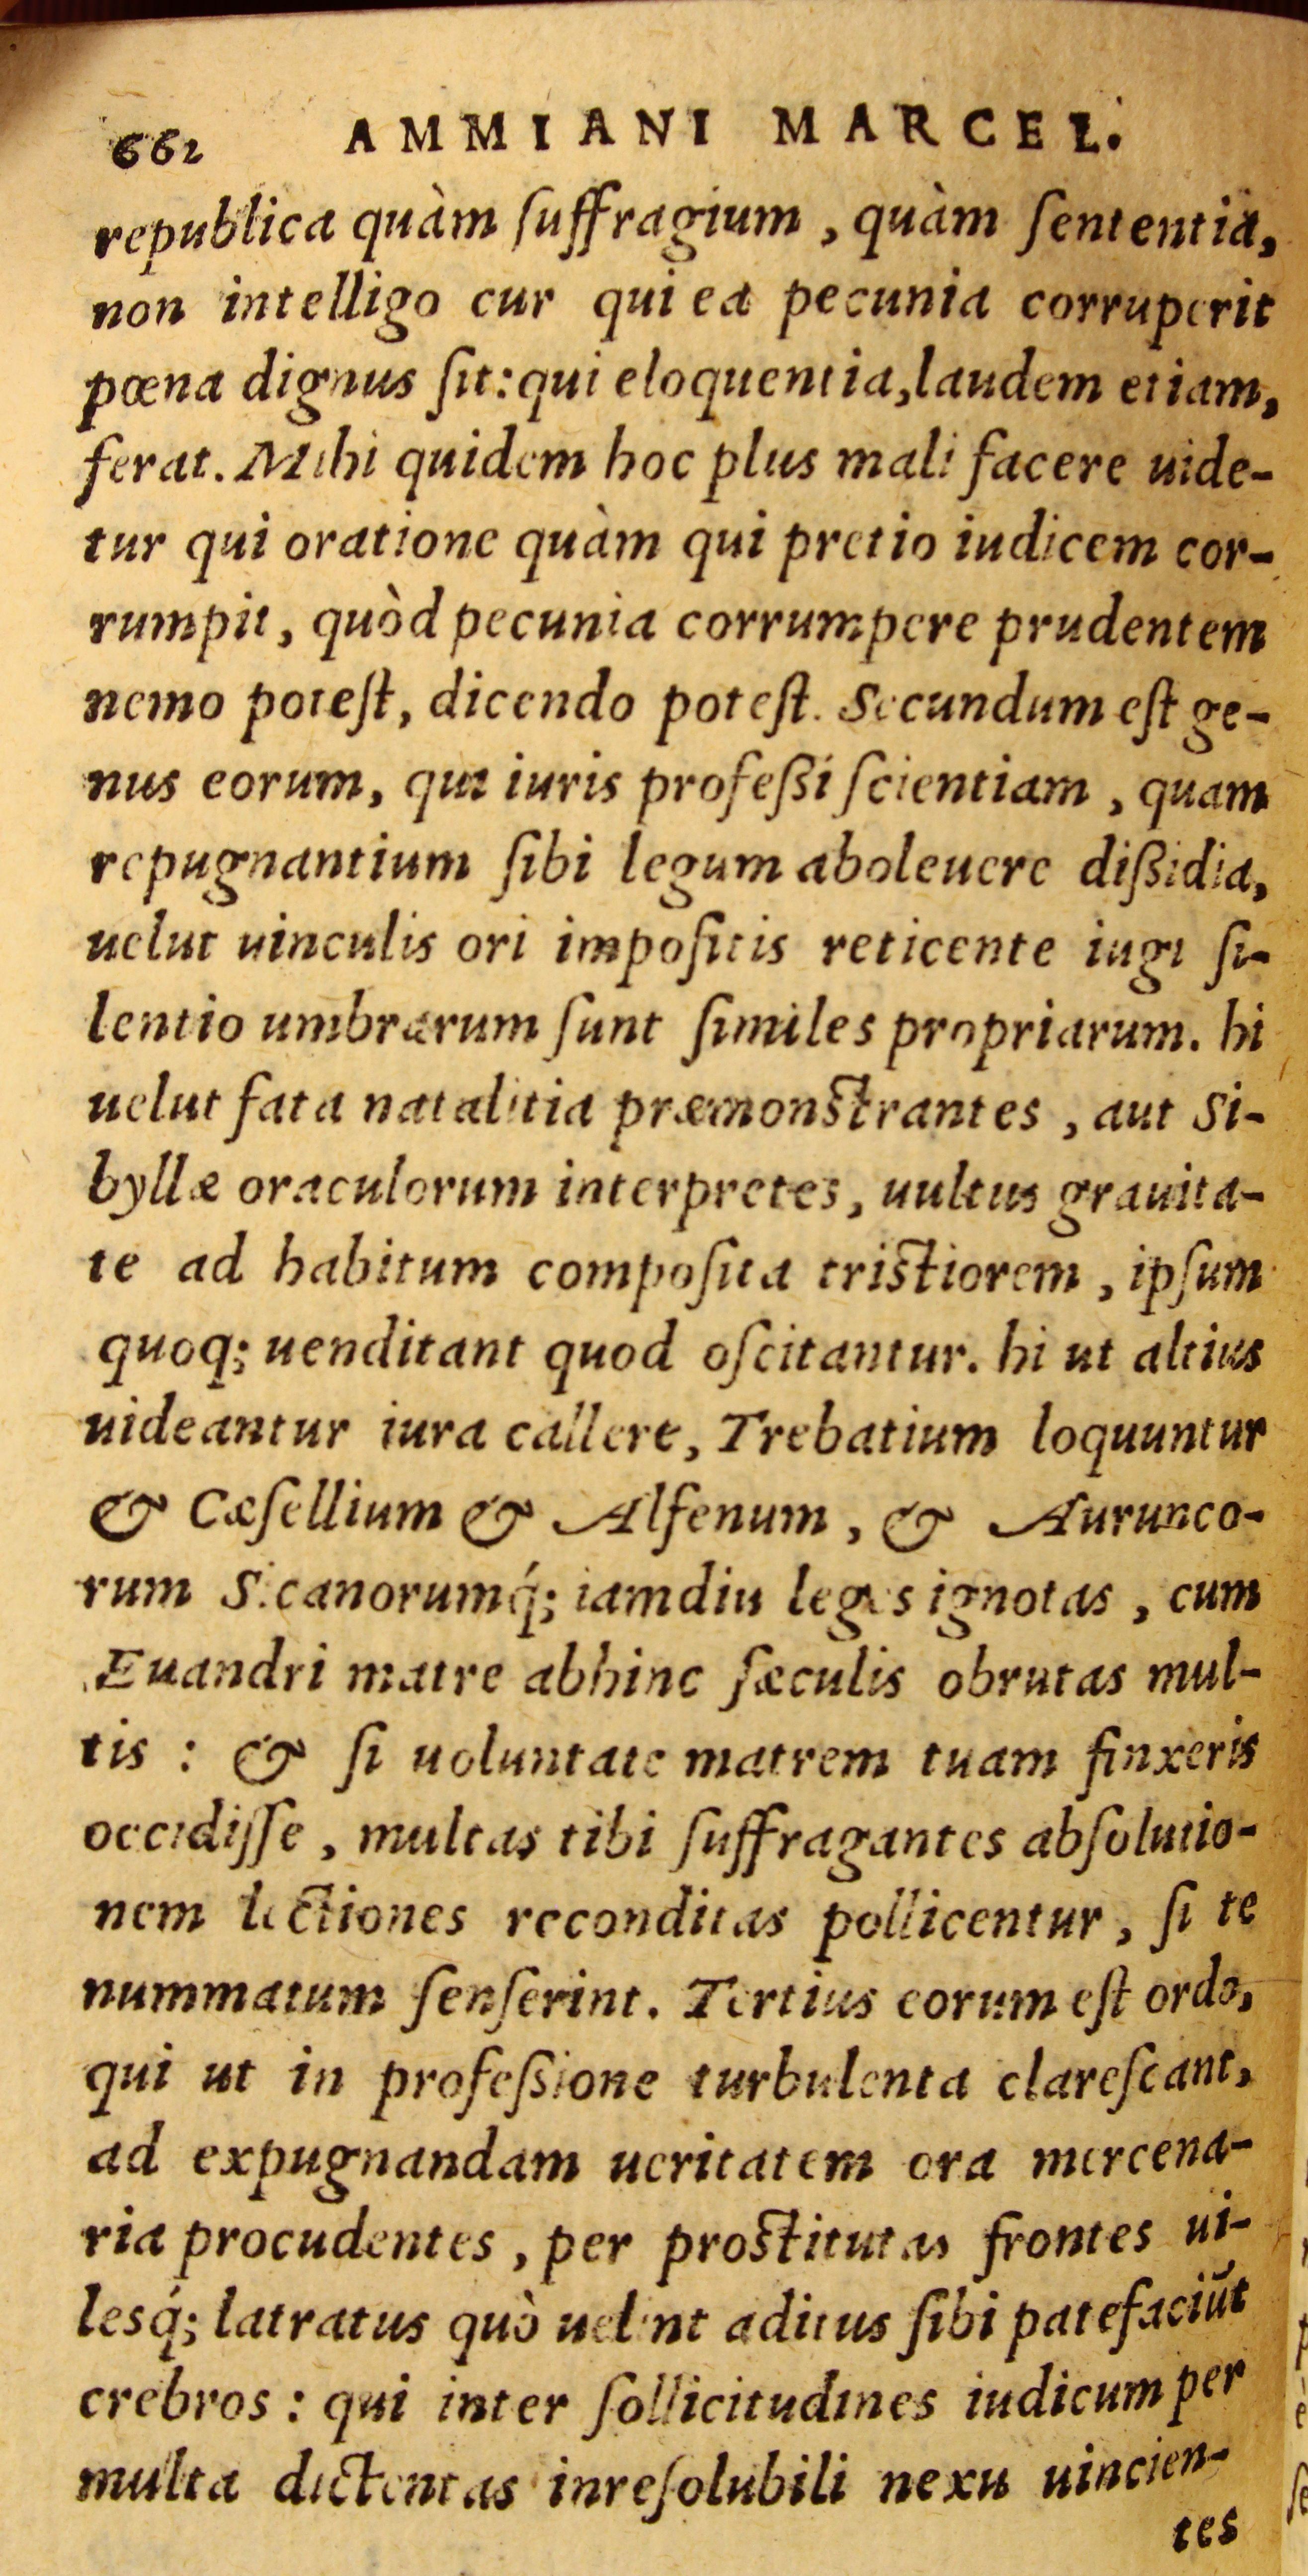 662 AMMIANI MARCEL.
republica quàm ſuffragium, quàm ſententia,
non intelligo cur qui ea pecunia corruperit
pœna dignus ſit: qui eloquentia, laudem etiam,
ferat. Mihi quidem hoc plus mali facere uide-
tur qui oratione quàm qui pretio iudicem cor-
rumpit, quòd pecunia corrumpere prudentem
nemo poteſt, dicendo poteſt. Secundum eſt ge-
nus eorum, qui iuris profeßi ſcientiam, quam
repugnantium ſibi legum aboleuere dißidia,
uelut uinculis ori impoſitis reticente iugi ſi-
lentio umbrarum ſunt ſimiles propriarum. hi
uelut fata natalitia præmonſtrantes, aut Si-
byllæ oraculorum interpretes, uultus grauita-
te ad habitum compoſita triſtiorem, ipſum
quoq; uenditant quod oſcitantur. hi ut altius
uideantur iura callere, Trebatium loquuntur
& Cæſellium & Alfenum, & Aurunco-
rum Sicanorumq́; iamdiu leges ignotas, cum
Euandri matre abhinc ſæculis obrutas mul-
tis: & ſi uoluntate matrem tuam finxeris
occidiſſe, multas tibi ſuffragantes abſolutio-
nem lectiones reconditas pollicentur, ſi te
nummatum ſenſerint. Tertius eorum eſt ordo,
qui ut in profeßione turbulenta clareſcant,
ad expugnandam ueritatem ora mercena-
ria procudentes, per proſtitutas frontes ui-
lesq́; latratus quò uelint aditus ſibi patefaciūt
crebros: qui inter ſollicitudines iudicum per
multa dictentas inreſolubili nexu uincien-
tes